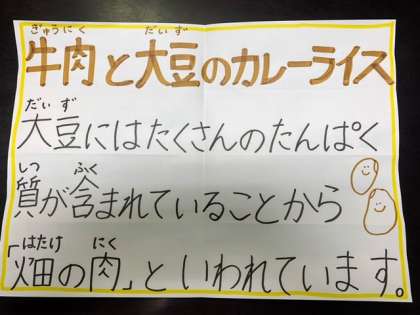 ぎゅうにく だいず
牛肉と大豆のカレーライス
だいず
大豆にはたくさんのたんぱく
しつ ふく
質が含まれていることから
はたけ にく
「畑の肉」といわれています。